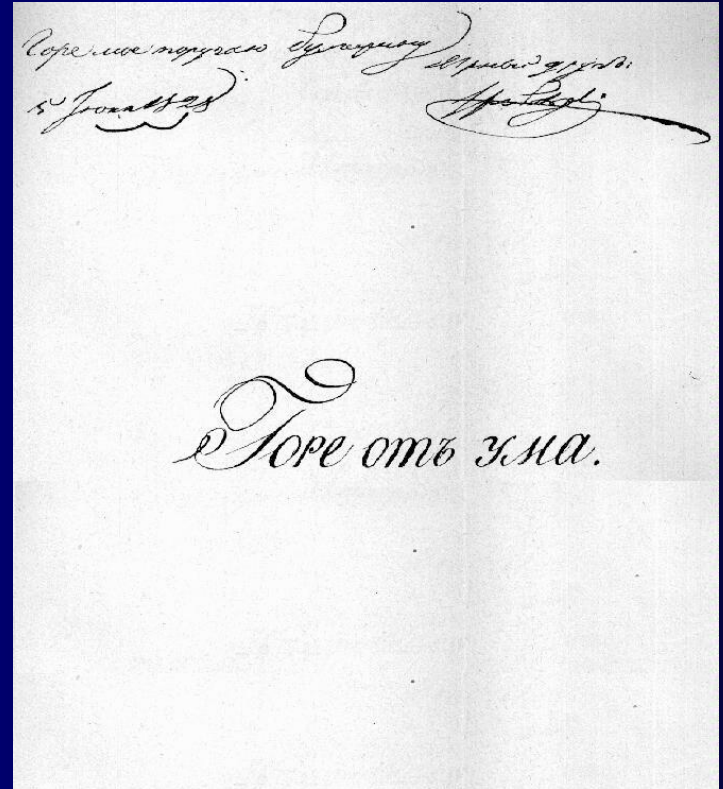 Горе мое поручаю Булгарину
вѣрный другъ
5 Iюня 1828
Горе отъ ума.